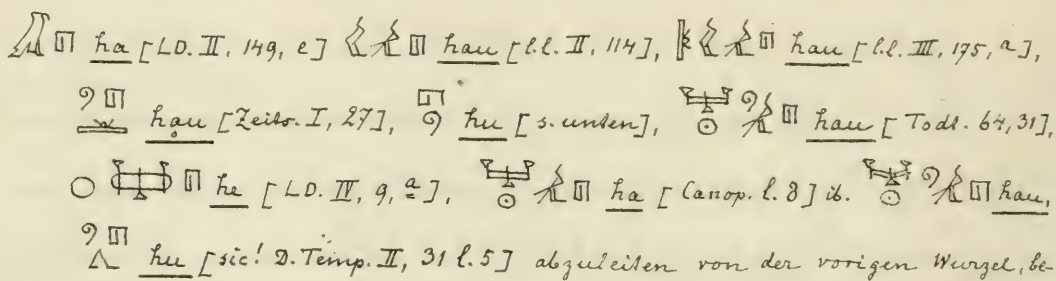 ha [LD. II, 149, e] hau [l.l. II, 114], hau [l.l. III, 175, a],
hau [Zeits. I, 27], hu [s. unten], hau [Todt. 64, 31],
he [LD. IV, 9, a], ha [Canop. l. 8] ib. hau,
hu [sic! D. Temp. II, 31 l. 5] abzuleiten von der vorigen Wurzel, be-